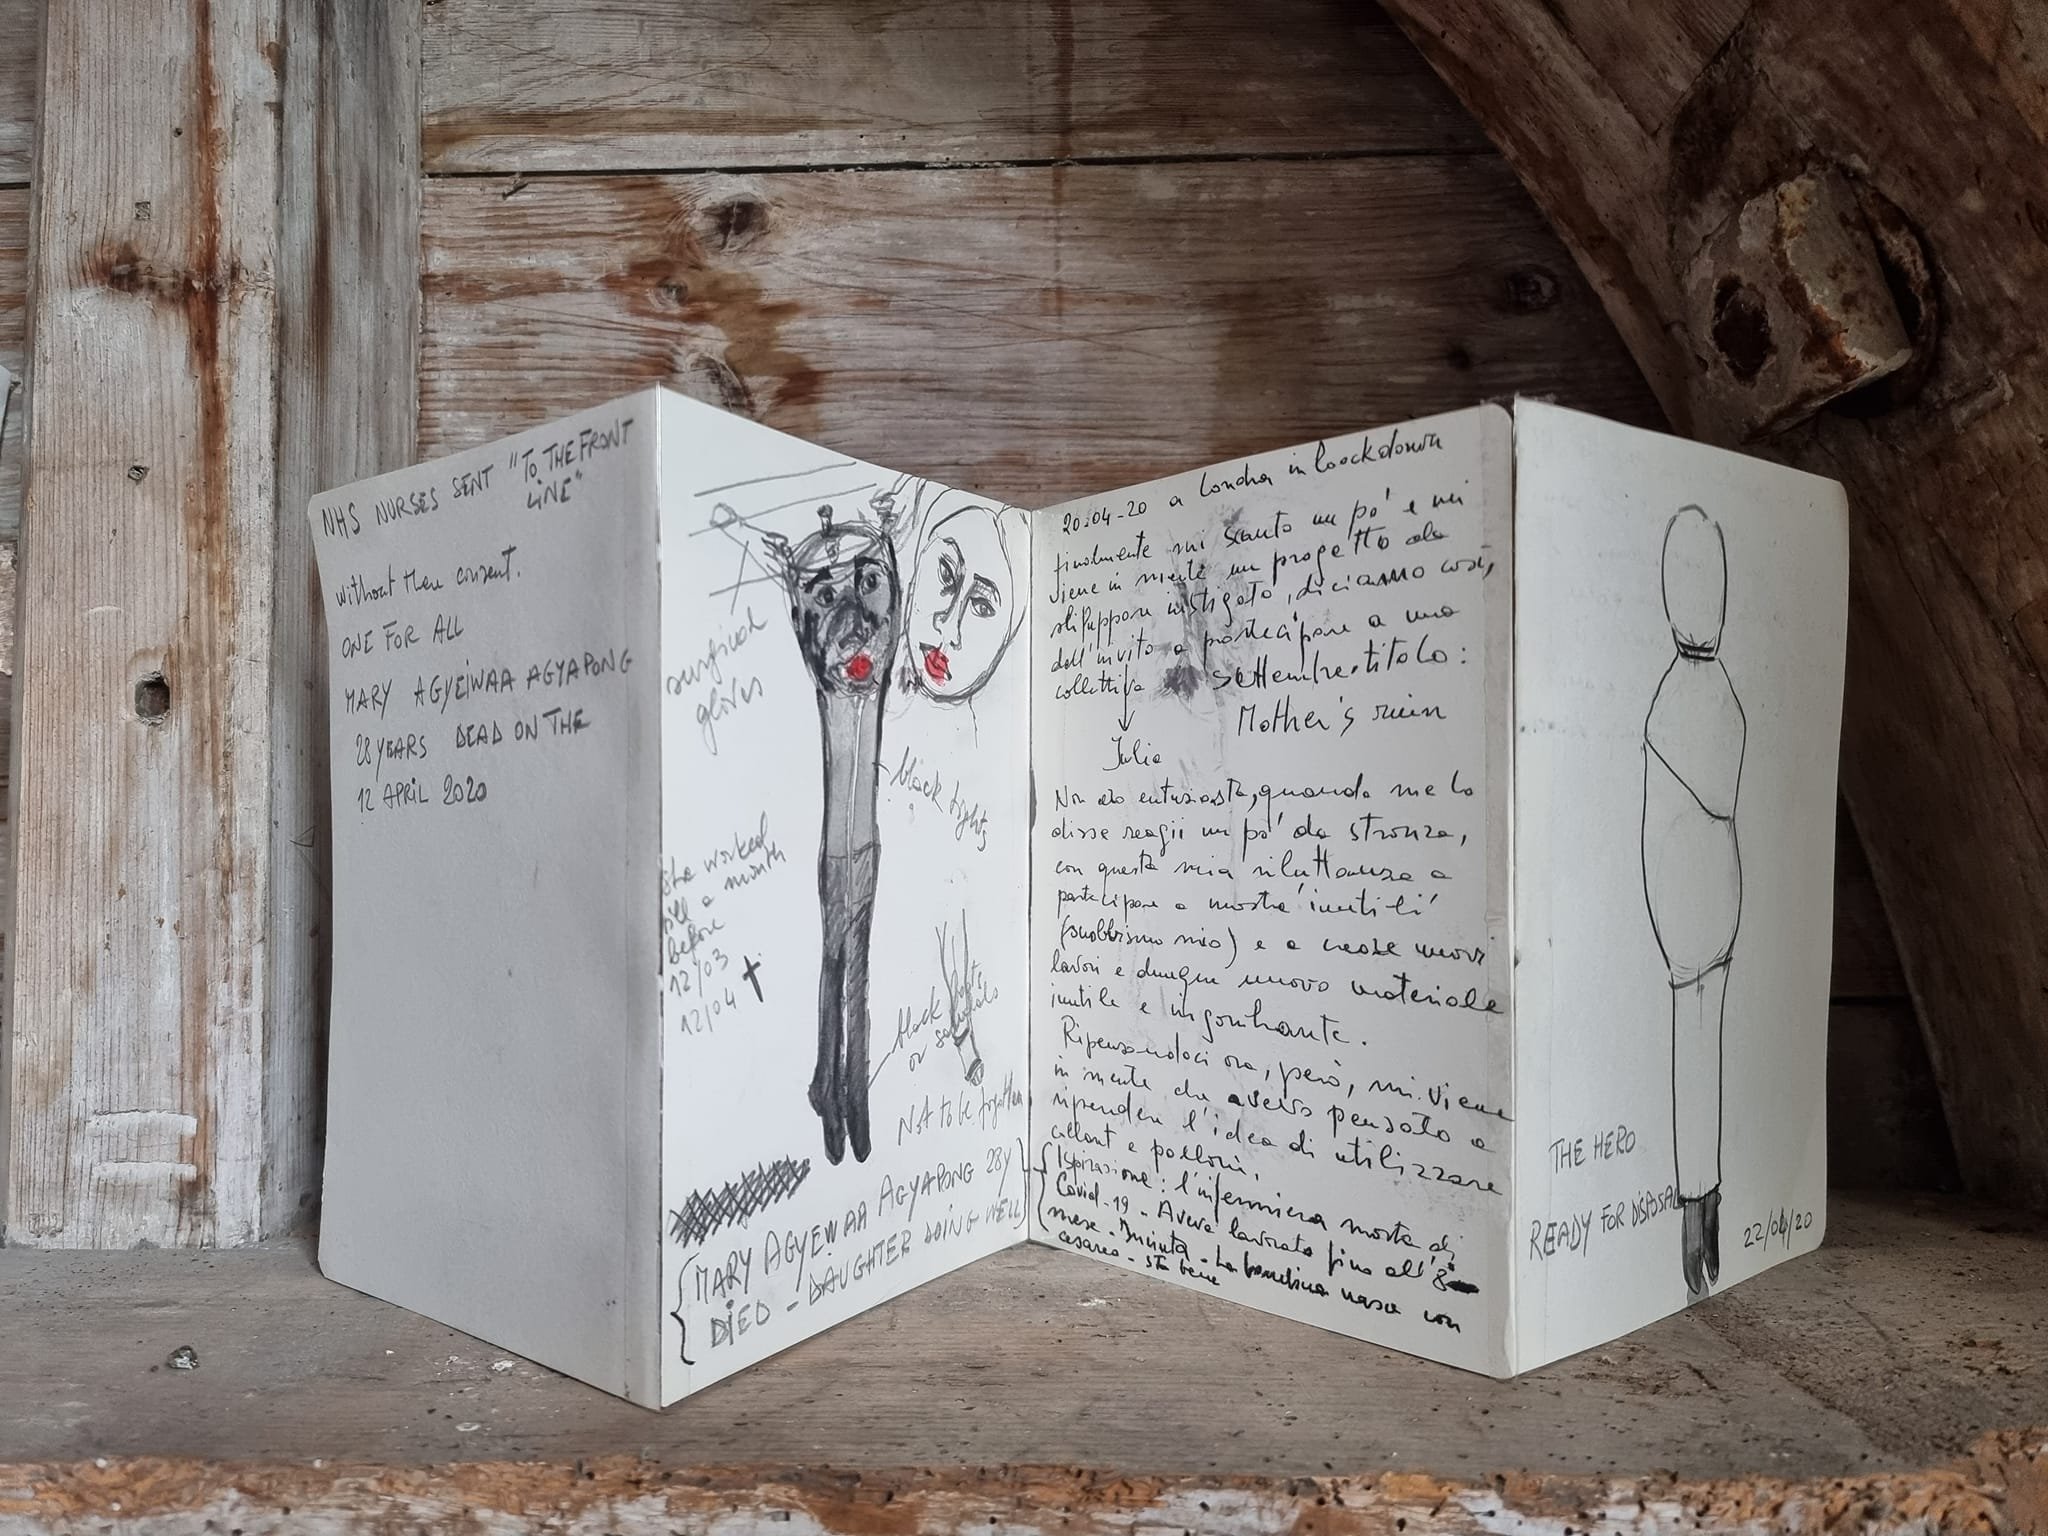 NHS NURSES SENT "TO THE FRONT
LINE"
without their consent.
ONE FOR ALL
MARY AGYEIWAA AGYAPONG
28 YEARS DEAD ON THE
12 APRIL 2020
surgical
gloves
black tights
she worked
till a month
before
12/03
12/04 †
black boots
or sandals
Not to be forgotten
{MARY AGYEWAA AGYAPONG 28Y
DIED - DAUGHTER DOING WELL}
20-04-20 a Londra in loockdown
finalmente mi scanto un pò e mi
viene in mente un progetto da
sviluppare instigato, diciamo così,
dall'invito a partecipare a una
collettiva settembre titolo:
Mother's ruin
Julia
Non ero entusiasta, quando me lo
disse reagii un pò da stronza,
con questa mia riluttanza a
partecipare a mostre inutili
(snobbismo mio) e a creare nuovi
lavori e dunque nuovo materiale
inutile e ingombrante.
Ripensandoci ora, però, mi viene
in mente che avevo pensato a
riprendere l'idea di utilizzare
collant e palloni.
{Ispirazione: l'infermiera morta di
Covid-19 - Aveva lavorato fino all'8°
mese - Incinta - La bambina nasce con
cesareo - sta bene
THE HERO
READY FOR DISPOSAL
22/04/20